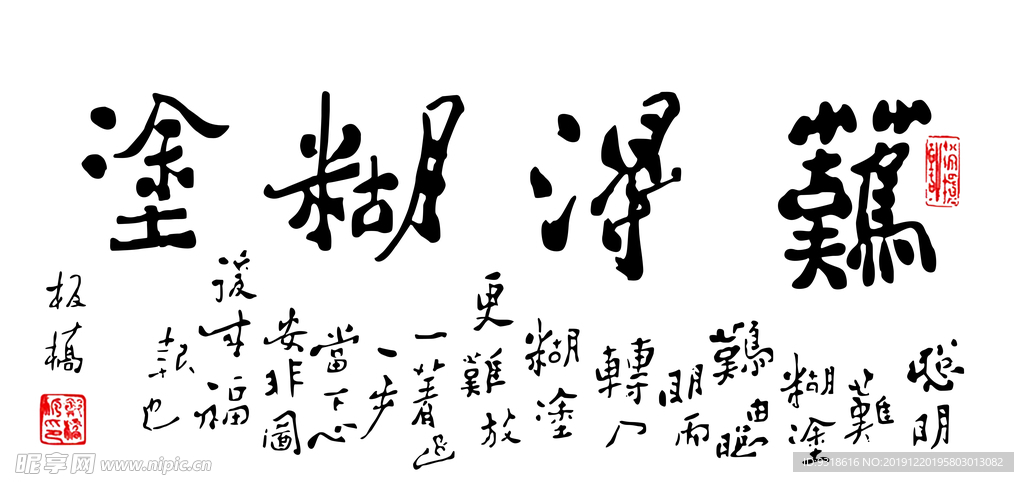 難得糊塗
聰明
難
糊塗
難由聰
明而
轉入
糊塗
更難放
一著退
一步
當下心
安非圖
後來福
報也
板橋
昵享网 www.nipic.cn
ID:9318616 NO:20191220195803013082